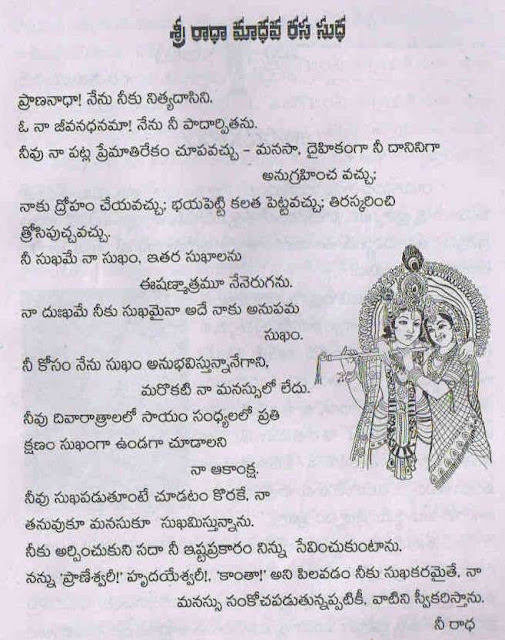 శ్రీ రాధా మాధవ రస సుధ
ప్రాణనాధా! నేను నీకు నిత్యదాసిని.
ఓ నా జీవనధనమా! నేను నీ పాదార్పితను.
నీవు నా పట్ల ప్రేమాతిరేకం చూపవచ్చు – మనసా, దైహికంగా నీ దానినిగా
అనుగ్రహించ వచ్చు;
నాకు ద్రోహం చేయవచ్చు; భయపెట్టి కలత పెట్టవచ్చు; తిరస్కరించి
త్రోసిపుచ్చవచ్చు.
నీ సుఖమే నా సుఖం, ఇతర సుఖాలను
ఈషణ్మాత్రమూ నేనెరుగను.
నా దుఃఖమే నీకు సుఖమైనా అదే నాకు అనుపమ
సుఖం.
నీ కోసం నేను సుఖం అనుభవిస్తున్నానేగాని,
మరొకటి నా మనస్సులో లేదు.
నీవు దివారాత్రాలలో సాయం సంధ్యలలో ప్రతి
క్షణం సుఖంగా ఉండగా చూడాలని
నా ఆకాంక్ష.
నీవు సుఖపడుతూంటే చూడటం కొరకే, నా
తనువుకూ మనసుకూ సుఖమిస్తున్నాను.
నీకు అర్పించుకుని సదా నీ ఇష్టప్రకారం నిన్ను సేవించుకుంటాను.
నన్ను 'ప్రాణేశ్వరీ!' హృదయేశ్వరీ!, 'కాంతా!' అని పిలవడం నీకు సుఖకరమైతే, నా
మనస్సు సంకోచపడుతున్నప్పటికీ, వాటిని స్వీకరిస్తాను.
నీ రాధ